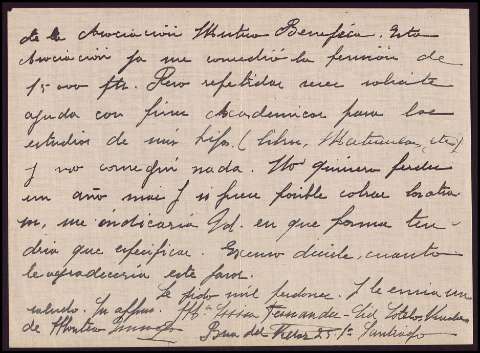 de la Asociación Mutua Benéfica. Esta
Asociación ya me concedió la pensión de
15000 pts. Pero repetidas veces solicité
ayuda con fines Académicos para los
estudios de mis hijos. (libros, Matriculas, etc)
y no conseguí nada. No quisiera perder
un año mas y si fuese posible cobrar los atra
me indicaría Vd. en que forma ten-
dria que especificar. Excuso decirle, cuanto
le agradecería este favor.
Le pido mil perdones. Y le envia un
saludo. Su affma. Mª Luisa Fernandez-Cid Viuda
de Montero Rua del Villar 25-1º Santiago